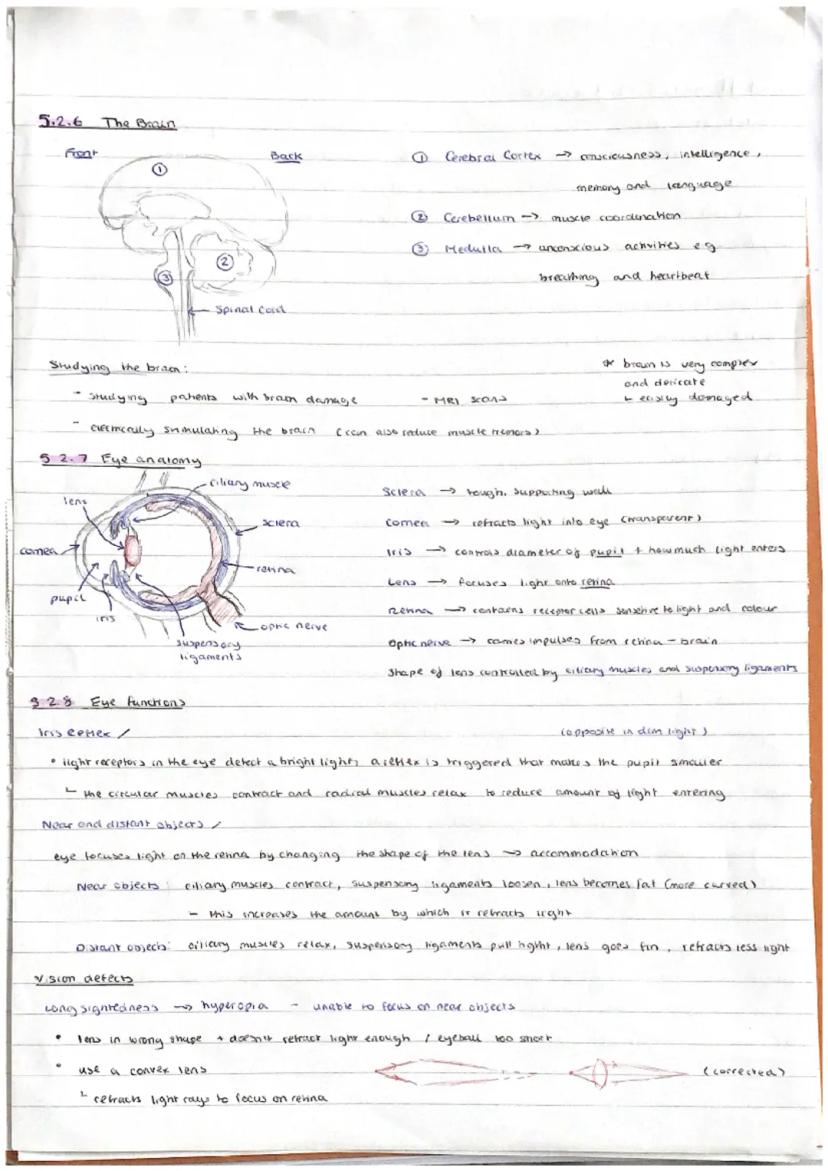 5.2.6 The Brain
Front
Back
①
②
③
Spinal Cord
① Cerebral Cortex → consciousness, intelligence,
memory and language
② Cerebellum → muscle coordination
③ Medulla → unconscious activities eg
breathing and heartbeat
Studying the brain:
- studying patients with brain damage - MRI scans
- electrically stimulating the brain (can also reduce muscle tremors)
* brain is very complex
and delicate
↳ easily damaged
5.2.7 Eye anatomy
ciliary muscle
lens
sclera
cornea
retina
pupil
iris
optic nerve
suspensory
ligaments
Sclera → tough, supporting wall
Cornea → refracts light into eye (transparent)
Iris → controls diameter of pupil + how much light enters
Lens → focuses light onto retina
Retina → contains receptor cells sensitive to light and colour
Optic nerve → carries impulses from retina - brain
Shape of lens controlled by ciliary muscles and suspensory ligaments
5.2.8 Eye functions
Iris reflex / (opposite in dim light)
• light receptors in the eye detect a bright light, a reflex is triggered that makes the pupil smaller
└ the circular muscles contract and radial muscles relax to reduce amount of light entering
Near and distant objects /
eye focuses light on the retina by changing the shape of the lens → accommodation
Near objects: ciliary muscles contract, suspensory ligaments loosen, lens becomes fat (more curved)
- this increases the amount by which it refracts light
Distant objects: ciliary muscles relax, suspensory ligaments pull tight, lens goes thin, refracts less light
Vision defects
Long sightedness → hyperopia - unable to focus on near objects
• lens in wrong shape + doesn't refract light enough / eyeball too short
• use a convex lens (corrected)
└ refracts light rays to focus on retina